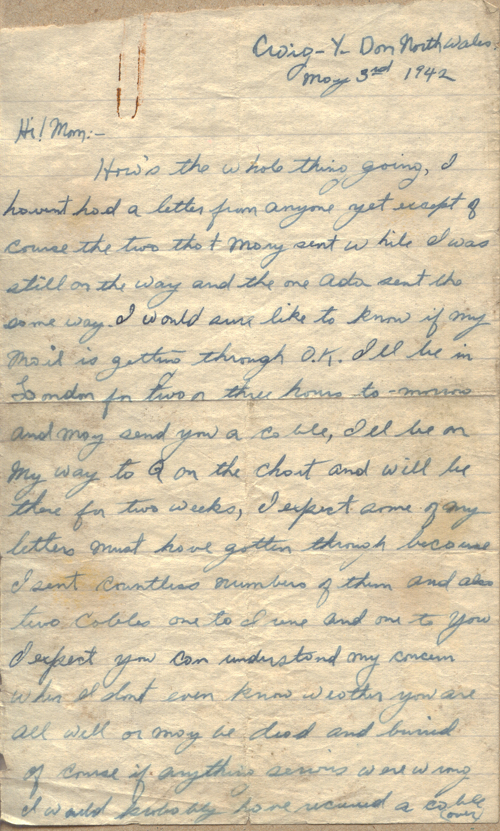 Craig-Y-Don North Wales.
May 3rd 1942
Hi! Mom:-
How's the whole thing going, I
havent had a letter from anyone yet except of
course the two that Mary sent while I was
still on the way and the one Ada sent the
same way. I would sure like to know if my
Mail is getting through O.K. I'll be in
London for two or three hours to-morrow
and may send you a cable, I'll be on
My way to Q on the chart and will be
there for two weeks, I expect some of my
letters must have gotten through because
I sent countless numbers of them and also
two Cables one to and one to You
I expect you can understand my concern
when I dont even know weather you are
all well or may be dead and buried
of course if anything serious were wrong
I would probably have received a cable
(over)